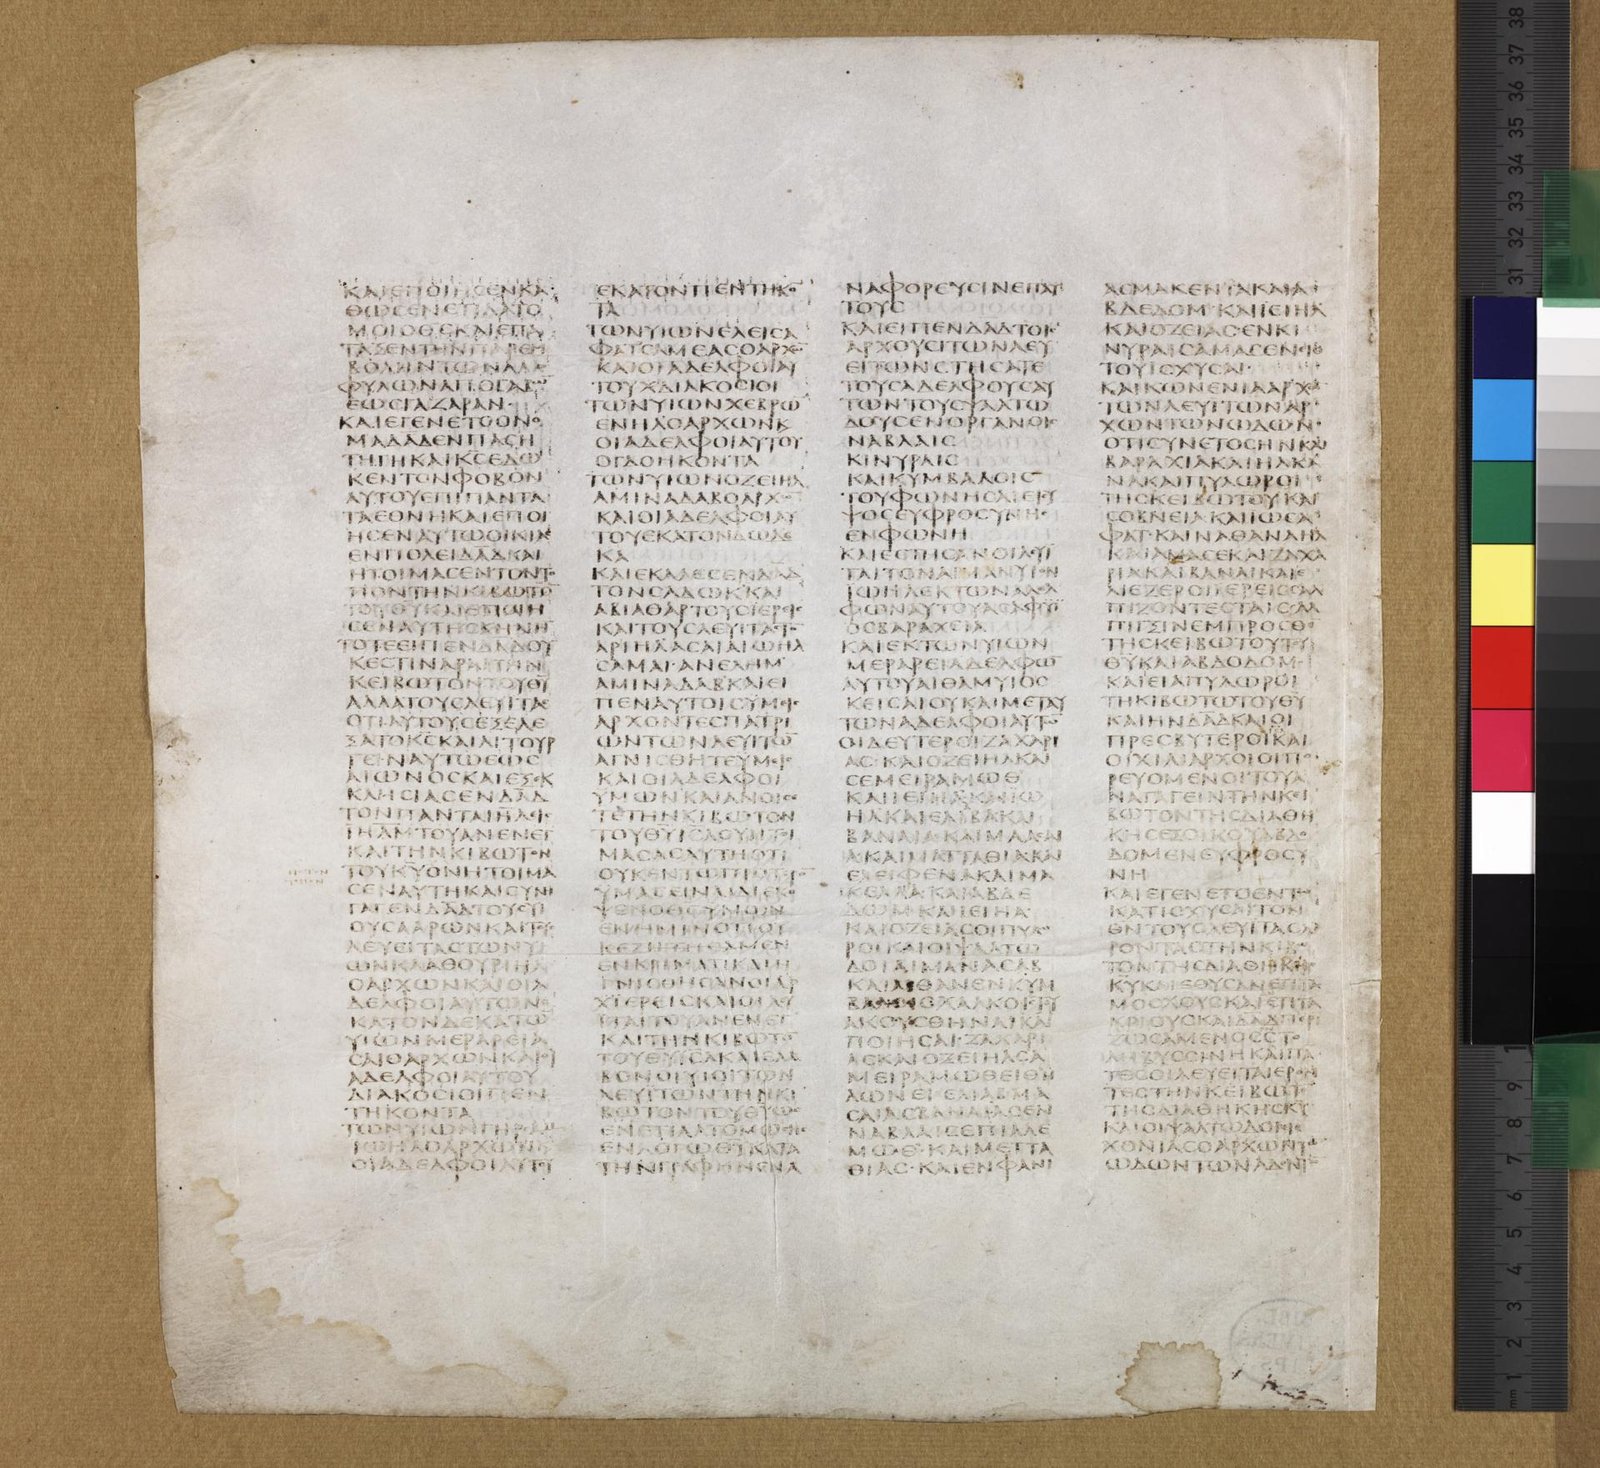 ΚΑΙΕΠΟΙΗCΕΝΚΑ
ΘΩCΕΝΕΤΙΛΑΤΟ
ΜΟΙΟΘCΚΑΙΕΠΑ
ΤΑΞΕΝΤΗΝΠΑΡΕΜ
ΒΟΛΗΝΤΩΝΑΛΛΟ
ΦΥΛΩΝΑΠΟΓΑΒ
ΕΩCΓΑΖΑΡΑΝ
ΚΑΙΕΓΕΝΕΤΟΟΝΟ
ΜΑΔΑΔΕΝΠΑCΗ
ΤΗΓΗΚΑΙΚCΕΔΩ
ΚΕΝΤΟΝΦΟΒΟΝ
ΑΥΤΟΥΕΠΙΠΑΝΤΑ
ΤΑΕΘΝΗΚΑΙΕΠΟΙ
ΗCΕΝΑΥΤΩΟΙΚΙΑC
ΕΝΠΟΛΕΙΔΑΔΚΑΙ
ΗΤΟΙΜΑCΕΝΤΟΝΤΟ
ΠΟΝΤΗΝΚΙΒΩΤΩ
ΤΟΥΘΥΚΑΙΕΠΟΙΗ
CΕΝΑΥΤΗCΚΗΝΗ
ΤΟΤΕΕΙΠΕΝΔΑΔΟΥ
ΚΕCΤΙΝΑΡΑΙΤΗΝ
ΚΕΙΒΩΤΟΝΤΟΥΘΥ
ΑΛΛΑΤΟΥCΛΕΥΙΤΑC
ΟΤΙΑΥΤΟΥCΕΞΕΛΕ
ΞΑΤΟΚCΚΑΙΛΙΤΟΥΡ
ΓΕΙΝΑΥΤΩΕΩC
ΑΙΩΝΟCΚΑΙΕΞΕΚ
ΚΛΗCΙΑCΕΝΔΑΔ
ΤΟΝΠΑΝΤΑΙΗΛΕΙ
ΙΗΛΜΤΟΥΑΝΕΝΕΓ
ΚΑΙΤΗΝΚΙΒΩΤΟΝ
ΤΟΥΚΥΟΝΗΤΟΙΜΑ
CΕΝΑΥΤΗΚΑΙCΥΝΗ
ΓΑΓΕΝΔΑΔΤΟΥCΥΙ
ΟΥCΑΑΡΩΝΚΑΙΤΟΥC
ΛΕΥΕΙΤΑCΤΩΝΥΙ
ΩΝΚΑΑΘΟΥΡΙΗΛ
ΟΑΡΧΩΝΚΑΙΟΙΑ
ΔΕΛΦΟΙΑΥΤΟΥΕ
ΚΑΤΟΝΔΕΚΑΤΩ
ΥΙΩΝΜΕΡΑΡΕΙΑ
CΑΙΘΑΡΧΩΝΚΑΙΟΙ
ΑΔΕΛΦΟΙΑΥΤΟΥ
ΔΙΑΚΟCΙΟΙΠΕΝ
ΤΗΚΟΝΤΑ
ΤΩΝΥΙΩΝΓΗΡCΑΜ
ΙΩΗΛΟΑΡΧΩΝΚΑΙ
ΟΙΑΔΕΛΦΟΙΑΥΤΟΥ
ΕΚΑΤΟΝΠΕΝΤΗΚΟ
ΤΑ
ΤΩΝΥΙΩΝΕΛΕΙCΑ
ΦΑΤCΑΜΕΑCΟΑΡΧΩ
ΚΑΙΟΙΑΔΕΛΦΟΙΑΥ
ΤΟΥΧΔΙΑΚΟCΙΟΙ
ΤΩΝΥΙΩΝΧΕΒΡΩ
ΕΝΗΛΟΑΡΧΩΝΚ
ΟΙΑΔΕΛΦΟΙΑΥΤΟΥ
ΟΓΔΟΗΚΟΝΤΑ
ΤΩΝΥΙΩΝΟΖΕΙΗΛ
ΑΜΙΝΑΔΑΒΟΑΡΧΩ
ΚΑΙΟΙΑΔΕΛΦΟΙΑΥ
ΤΟΥΕΚΑΤΟΝΔΩΔΕ
ΚΑ
ΚΑΙΕΚΑΛΕCΕΝΔΑΔ
ΤΟΝCΑΔΩΚΚΑΙ
ΑΒΙΑΘΑΡΤΟΥCΙΕΡΕΙC
ΚΑΙΤΟΥCΛΕΥΙΤΑC
ΑΡΙΗΛΑCΑΙΑΙΩΗΛ
CΑΜΑΙΑΝΕΛΗΜ
ΑΜΙΝΑΔΑΒΚΑΙΕΙ
ΠΕΝΑΥΤΟΙCΥΜΕΙC
ΑΡΧΟΝΤΕCΠΑΤΡΙ
ΩΝΤΩΝΛΕΥΙΤΩ
ΑΓΝΙCΘΗΤΕΥΜΕΙC
ΚΑΙΟΙΑΔΕΛΦΟΙ
ΥΜΩΝΚΑΙΑΝΟΙCΕ
ΤΕΤΗΝΚΙΒΩΤΟΝ
ΤΟΥΘΥΙCΛΟΥΗΤΟΙ
ΜΑCΑCΑΥΤΗΟΤΙ
ΟΥΚΕΝΤΩΠΡΟΤΕΡΟ
ΥΜΑCΕΙΝΑΙΔΙΕΚΟ
ΨΕΝΟΘCΗΜΩΝ
ΕΝΗΜΙΝΟΤΙΟΥ
ΚΕΖΗΤΗCΑΜΕΝ
ΕΝΚΡΙΜΑΤΙΚΑΙΗ
ΓΝΙCΘΗCΑΝΟΙΑΡ
ΧΙΕΡΕΙCΚΑΙΟΙΛΕΥ
ΙΤΑΙΤΟΥΑΝΕΝΕΓ
ΚΑΙΤΗΝΚΙΒΩΤΟ
ΤΟΥΘΥΙCΛΚΑΙΕΛΑ
ΒΟΝΟΙΥΙΟΙΤΩΝ
ΛΕΥΙΤΩΝΤΗΝΚΙ
ΒΩΤΟΝΤΟΥΘΥΩC
ΕΝΕΤΙΛΑΤΟΜΩCΗC
ΕΝΛΟΓΩΘΥΚΑΤΑ
ΤΗΝΓΡΑΦΗΝΕΝΑ
ΝΑΦΟΡΕΥCΙΝΕΠΑΥ
ΤΟΥC
ΚΑΙΕΙΠΕΝΔΑΔΤΟΙC
ΑΡΧΟΥCΙΤΩΝΛΕΥ
ΕΙΤΩΝCΤΗCΑΤΕ
ΤΟΥCΑΔΕΛΦΟΥCΑΥ
ΤΩΝΤΟΥCΨΑΛΤΩ
ΔΟΥCΕΝΟΡΓΑΝΟΙC
ΝΑΒΛΑΙC
ΚΙΝΥΡΑΙC
ΚΑΙΚΥΜΒΑΛΟΙC
ΤΟΥΦΩΝΗCΑΙΕΙCΥ
ΨΟCΕΥΦΡΟCΥΝΗC
ΕΝΦΩΝΗ
ΚΑΙΕCΤΗCΑΝΟΙΛΕΥΙ
ΤΑΙΤΟΝΑΙΜΑΝΥΙΟΝ
ΙΩΗΛΕΚΤΩΝΑΔΕΛ
ΦΩΝΑΥΤΟΥΑCΑΦΥΙ
ΟCΒΑΡΑΧΕΙΑ
ΚΑΙΕΚΤΩΝΥΙΩΝ
ΜΕΡΑΡΕΙΑΔΕΛΦΩ
ΑΥΤΟΥΑΙΘΑΜΥΙΟC
ΚΕΙCΑΙΟΥΚΑΙΜΕΤΑΥ
ΤΩΝΑΔΕΛΦΟΙΑΥΤΩ
ΟΙΔΕΥΤΕΡΟΙΖΑΧΑΡΙ
ΑCΚΑΙΟΖΕΙΗΛΚΑΙ
CΕΜΕΙΡΑΜΩΘ
ΗΛΚΑΙΕΛΙΑΒΑΚΑΙ
ΒΑΝΑΙΑΚΑΙΜΑΑCΑΙ
ΑΚΑΙΜΑΤΤΑΘΙΑΚΑΙ
ΕΛΕΙΦΕΝΑΚΑΙΜΑ
ΚΕΛΛΑΚΑΙΑΒΔΕ
ΔΩΜΚΑΙΙΕΙΗΛ
ΚΑΙΟΖΕΙΑCΟΙΠΥΛΩ
ΡΟΙΚΑΙΟΙΨΑΛΤΩ
ΔΟΙΑΙΜΑΝΑCΑΒ
ΚΑΙΑΙΘΑΝΕΝΚΥΜ
ΒΑΛΟΙCΧΑΛΚΟΙCΤΟΥ
ΑΚΟΥCΘΗΝΑΙΚΑΙ
ΠΟΙΗCΑΙΖΑΧΑΡΙ
ΑCΚΑΙΟΖΕΙΗΛCΑ
ΜΕΙΡΑΜΩΘΕΙΘΗ
ΛΩΝΕΙΕΛΙΑΒΜΑ
CΑΙΑCΒΑΝΑΙΑCΕΝ
ΝΑΒΛΑΙCΕΠΙΑΛΕ
ΜΩΘΚΑΙΜΕΤΤΑ
ΘΙΑCΚΑΙΕΝΦΑΝΙ
ΑCΜΑΚΕΝΙΑΚΑΙΑ
ΒΔΕΔΟΜΚΑΙΙΕΙΗΛ
ΚΑΙΟΖΕΙΑCΕΝΚΙ
ΝΥΡΑΙCΑΜΑCΕΝΙΘ
ΤΟΥΙCΧΥCΑΙ
ΚΑΙΚΩΝΕΝΙΑΑΡΧΩ
ΤΩΝΛΕΥΙΤΩΝΑΡ
ΧΩΝΤΩΝΩΔΩΝ
ΟΤΙCΥΝΕΤΟCΗΝΚΑΙ
ΒΑΡΑΧΙΑΚΑΙΗΛΚΑ
ΝΑΚΑΙΠΥΛΩΡΟΙ
ΤΗCΚΕΙΒΩΤΟΥΚΑΙ
CΟΒΝΕΙΑΚΑΙΙΩCΑ
ΦΑΤΚΑΙΝΑΘΑΝΑΗΛ
ΚΑΙΑΜΑCΕΚΑΙΖΑΧΑ
ΡΙΑΚΑΙΒΑΝΑΙΚΑΙΕ
ΛΙΕΖΕΡΟΙΙΕΡΕΙCCΑΛ
ΠΙΖΟΝΤΕCΤΑΙCCΑΛ
ΠΙΓΞΙΝΕΜΠΡΟCΘΕ
ΤΗCΚΕΙΒΩΤΟΥΤΟΥ
ΘΥΚΑΙΑΒΔΟΔΟΜ
ΚΑΙΕΙΑΠΥΛΩΡΟΙ
ΤΗΚΙΒΩΤΩΤΟΥΘΥ
ΚΑΙΗΝΔΑΔΚΑΙΟΙ
ΠΡΕCΒΥΤΕΡΟΙΚΑΙ
ΟΙΧΙΛΙΑΡΧΟΙΟΙΠΟ
ΡΕΥΟΜΕΝΟΙΤΟΥΑ
ΝΑΓΑΓΕΙΝΤΗΝΚΕΙ
ΒΩΤΟΝΤΗCΔΙΑΘΗ
ΚΗCΕΞΟΙΚΟΥΑΒΔΕ
ΔΟΜΕΝΕΥΦΡΟCΥ
ΝΗ
ΚΑΙΕΓΕΝΕΤΟΕΝΤΩ
ΚΑΤΙCΧΥCΑΙΤΟΝ
ΘΝΤΟΥCΛΕΥΙΤΑCΑΙ
ΡΟΝΤΑCΤΗΝΚΙΒΩ
ΤΟΝΤΗCΔΙΑΘΗΚΗC
ΚΥΚΑΙΕΘΥCΑΝΕΠΤΑ
ΜΟCΧΟΥCΚΑΙΕΠΤΑ
ΚΡΙΟΥCΚΑΙΔΑΔΠΕΡΙ
ΖΩCΑΜΕΝΟCCΤΟ
ΛΗΒΥCCΙΝΗΚΑΙΠΑ
ΤΕCΟΙΛΕΥΕΙΤΑΙΕΡΟΝ
ΤΕCΤΗΝΚΕΙΒΩΤΟ
ΤΗCΔΙΑΘΗΚΗCΚΥ
ΚΑΙΟΙΨΑΛΤΩΔΟΙ
ΧΟΝΙΑCΟΑΡΧΩΝΤΩ
ΩΔΩΝΤΩΝΑΔΟΝΤΩ